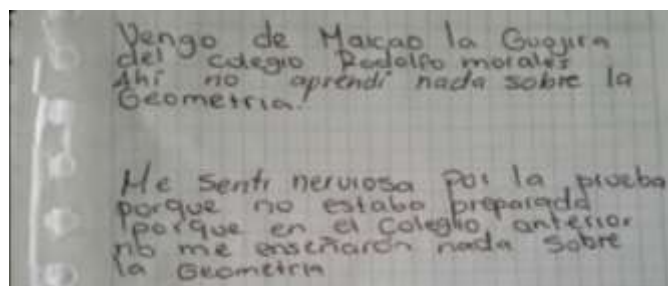 Vengo de Maicao la Guajira
del colegio Rodolfo morales
Ahí no aprendí nada sobre la
Geometria.
Me sentí nerviosa por la prueba
porque no estaba preparada
porque en el colegio anterior
no me enseñaron nada sobre
la Geometria